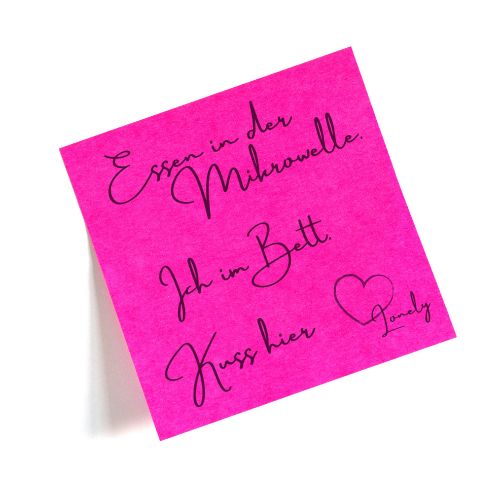 Essen in der
Mikrowelle.
Ich im Bett.
Kuss hier
Lonely